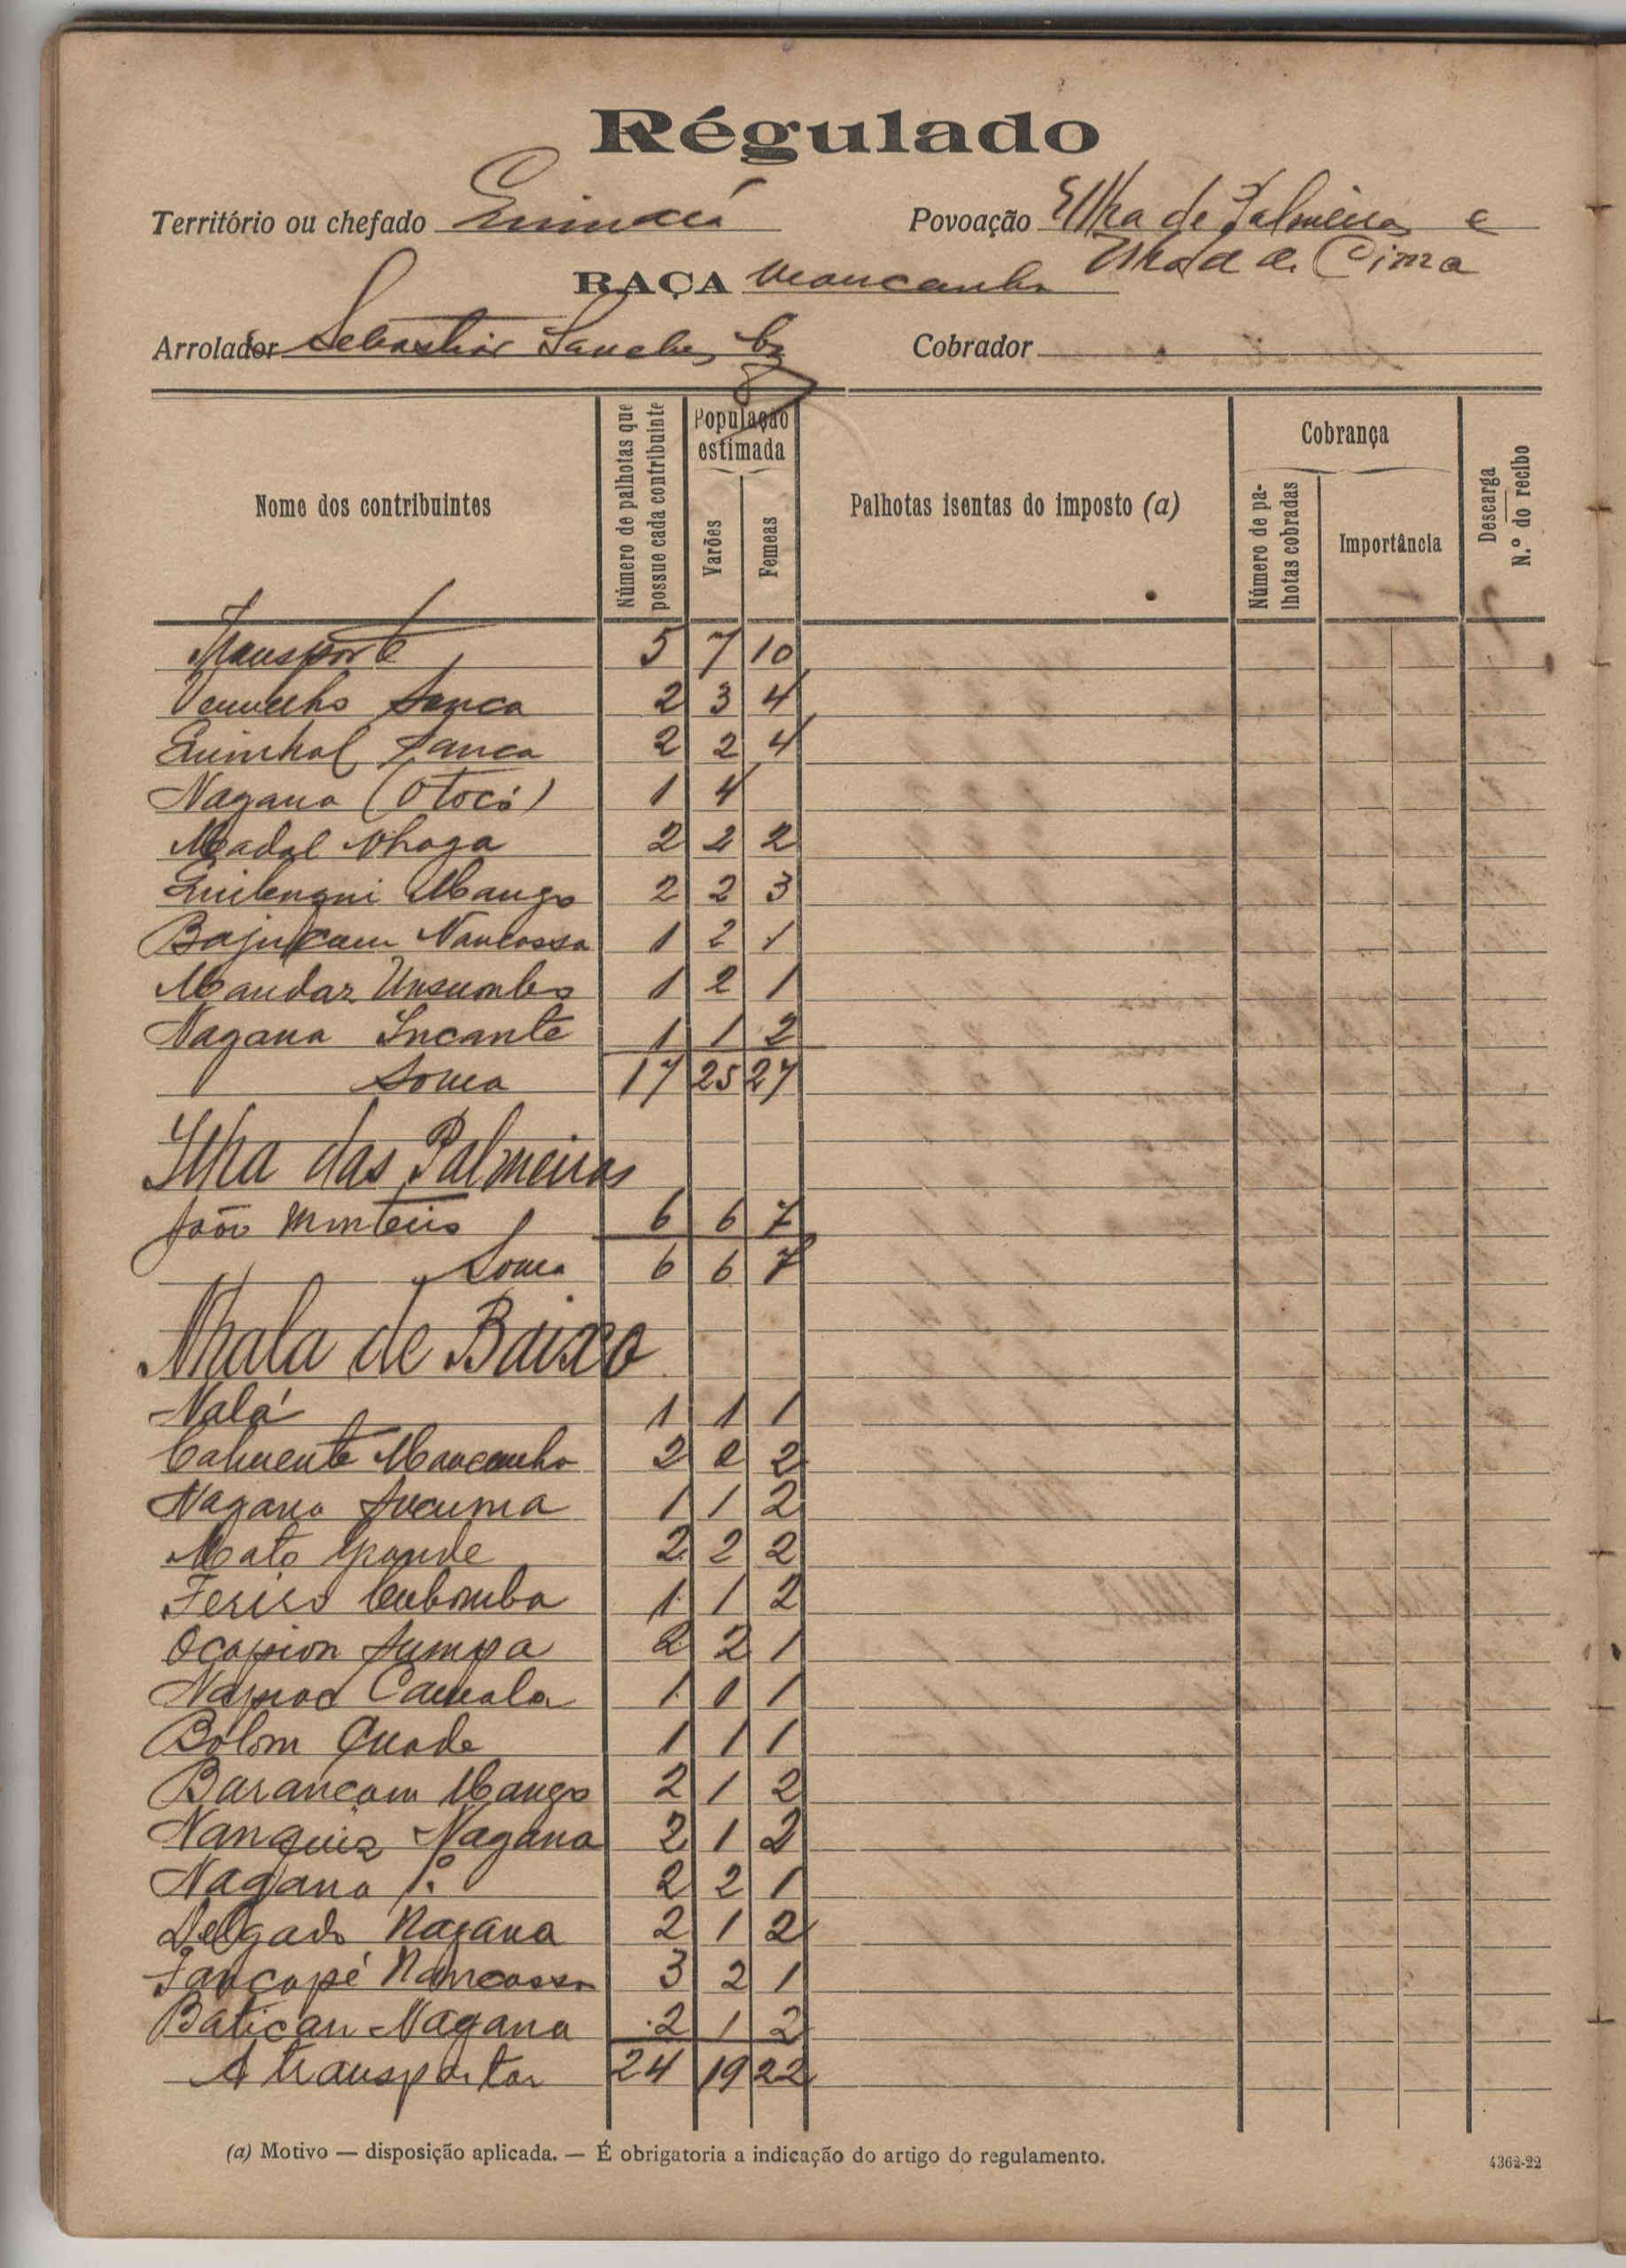 Régulado
Território ou chefado
Povoação Ilha de Palmeiras e
de Cima
RAÇA Mancanha
Arrolador Sebastião Sanches
Cobrador
Nome dos contribuintes
Número de palhotas que possue cada contribuinte
População estimada
Varões
Femeas
Palhotas isentas do imposto (a)
Cobrança
Número de palhotas cobradas
Importância
Descarga
N.º do recibo
Transporte 5 7 10
Vermelho Sanca 2 3 4
Quinhol Sanca 2 2 4
Nagana (Otocó) 1 4
Madal 2 2 2
Mango 2 2 3
Nancassa 1 2 1
Mandar 1 2 1
Nagana Incante 1 1 2
Soma 17 25 27
Ilha das Palmeiras
João Monteiro 6 6 7
Soma 6 6 7
Nhala de Baixo
Nalá 1 1 1
Mancanha 2 2 2
Nagana 1 1 2
Mato Grande 2 2 2
1 1 2
Sumpa 2 2 1
1 1 1
Bolom Quade 1 1 1
Barancam Mango 2 1 2
Nanquiz Nagana 2 1 2
Nagana 1.º 2 2 1
Delgado Nagana 2 1 2
Nancassa 3 2 1
Batican Nagana 2 1 2
A transportar 24 19 22
(a) Motivo — disposição aplicada. — É obrigatoria a indicação do artigo do regulamento.
4362-22